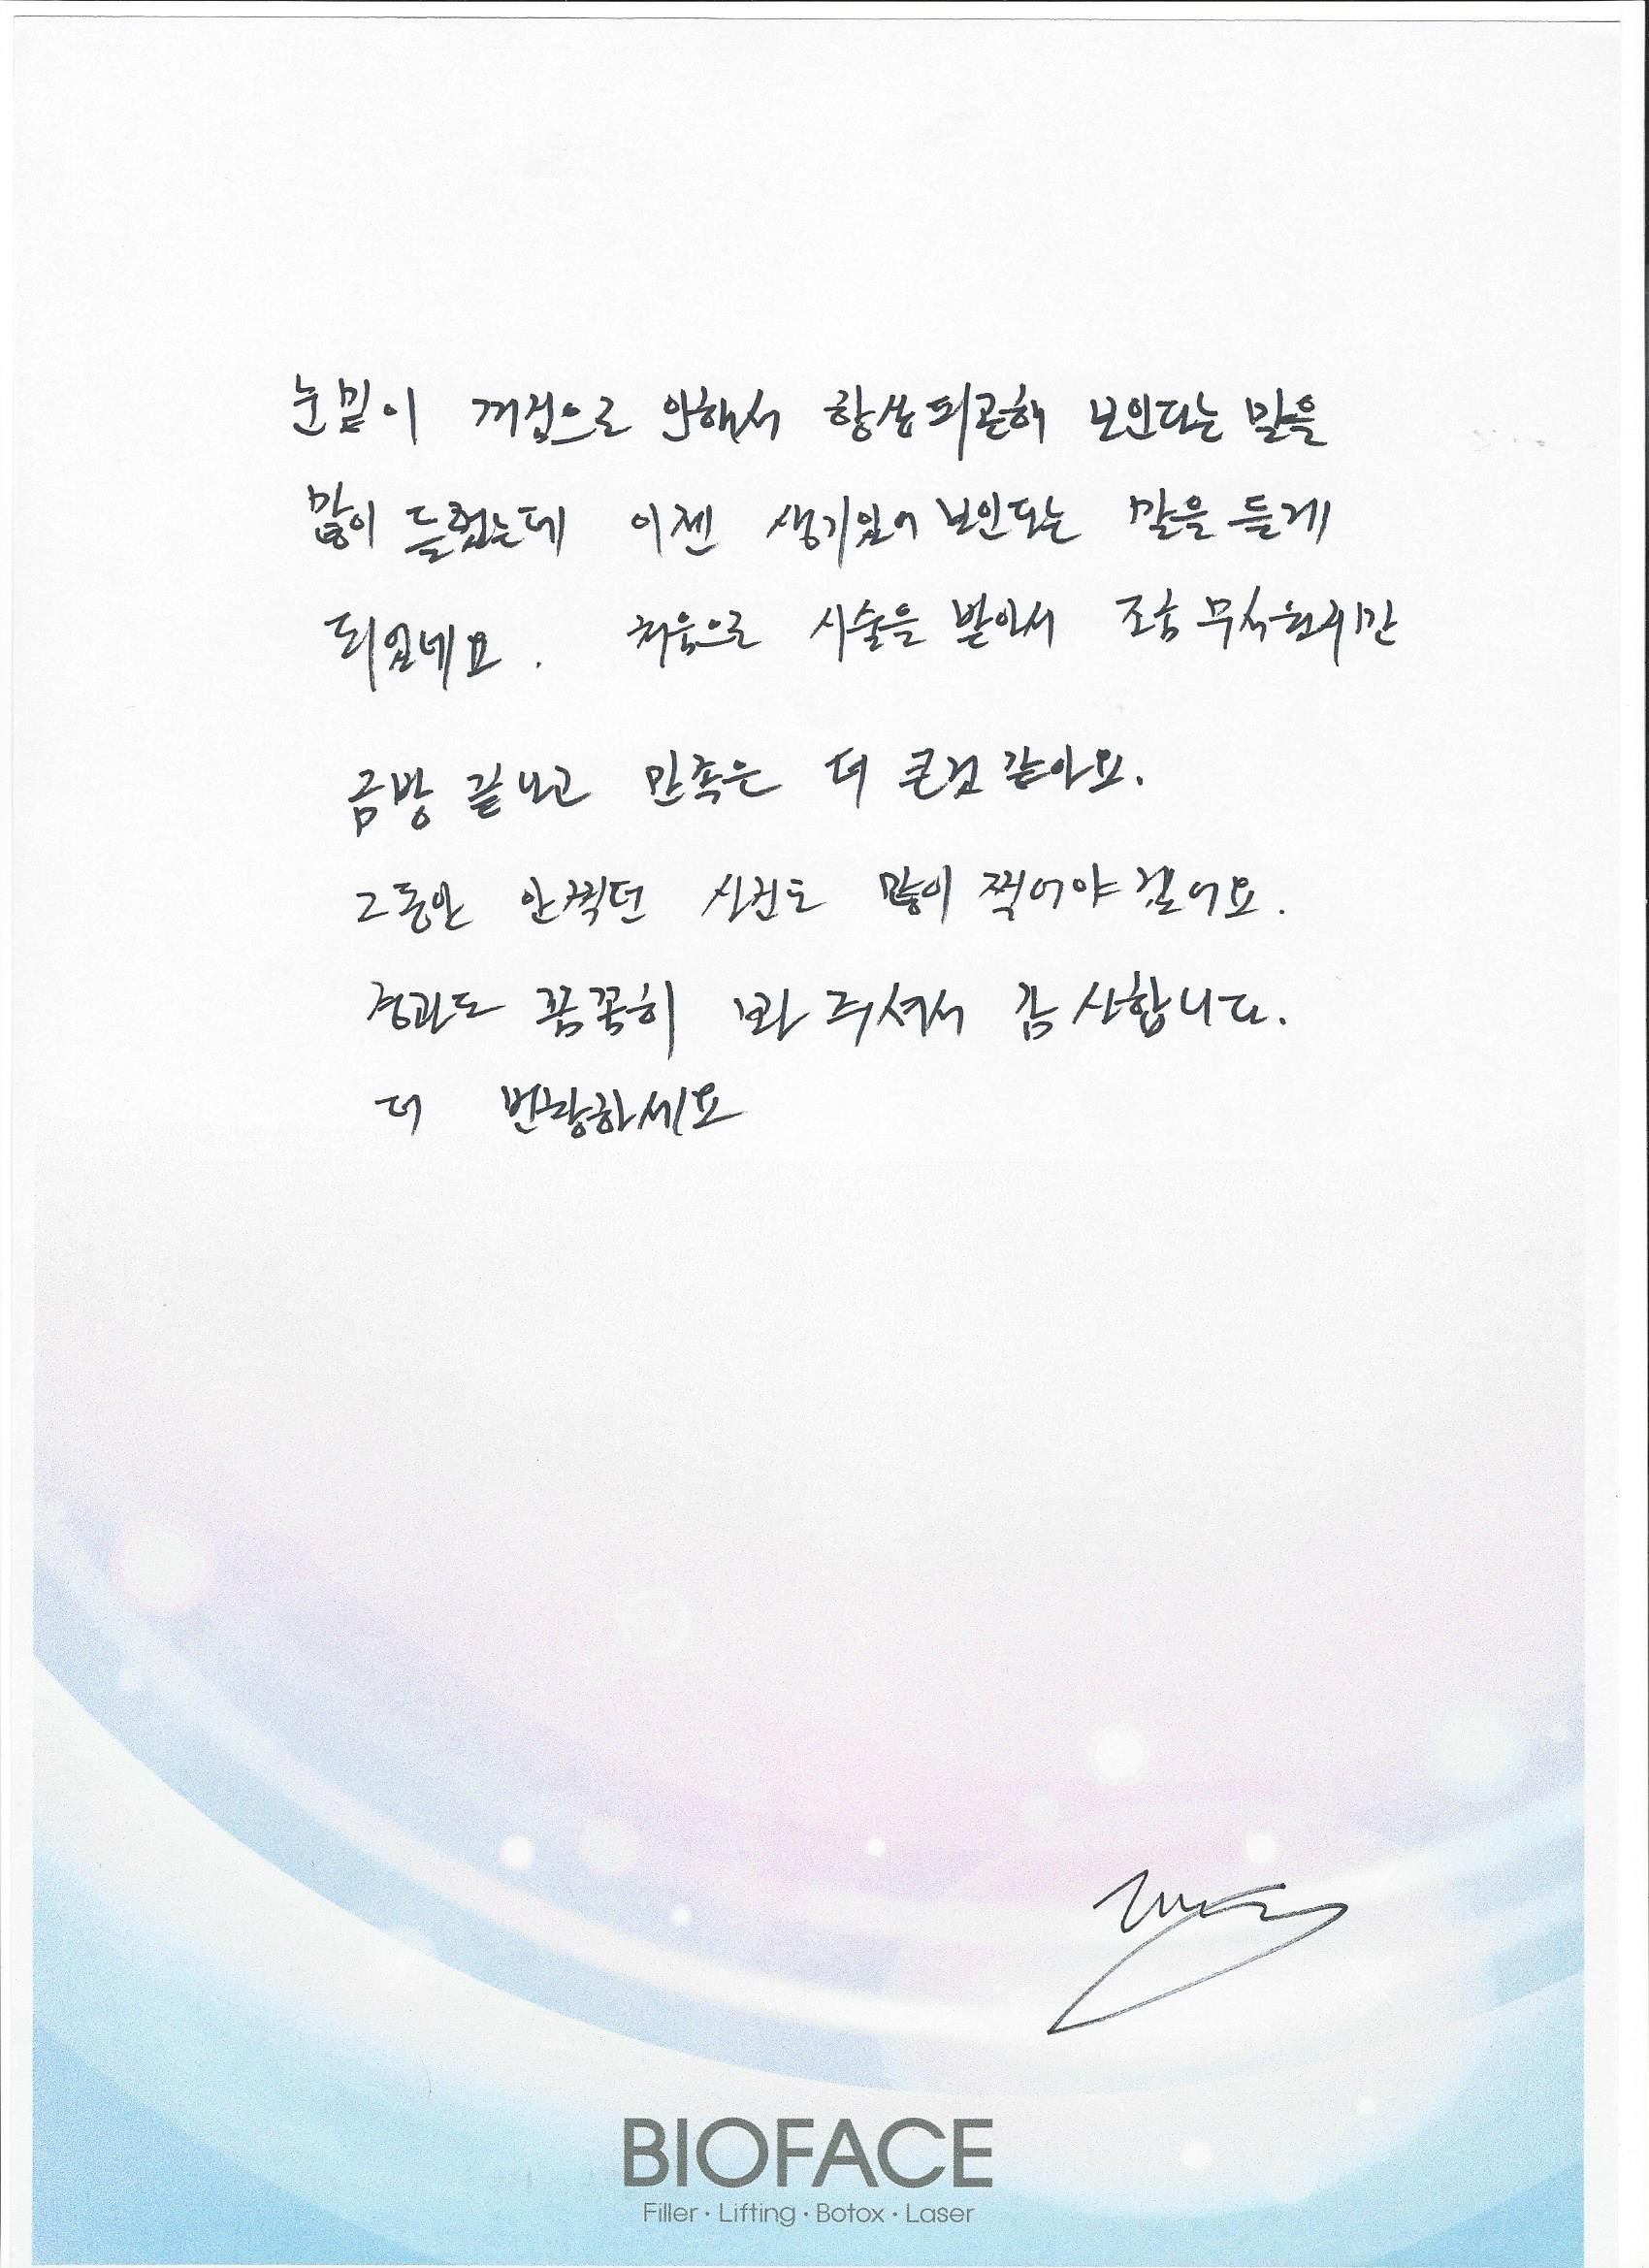 눈밑이 꺼짐으로 인해서 항상 피곤해 보인다는 말을
많이 들렸는데 이젠 생기있어 보인다는 말을 듣게
되었네요. 처음으로 시술을 받아서 조금 무서웠지만
금방 끝나고 만족은 더 큰것 같아요.
그동안 안찍던 사진도 많이 찍어야 겠어요.
경과도 꼼꼼히 봐 주셔서 감사합니다.
더 번창하세요
BIOFACE
Filler · Lifting · Botox · Laser